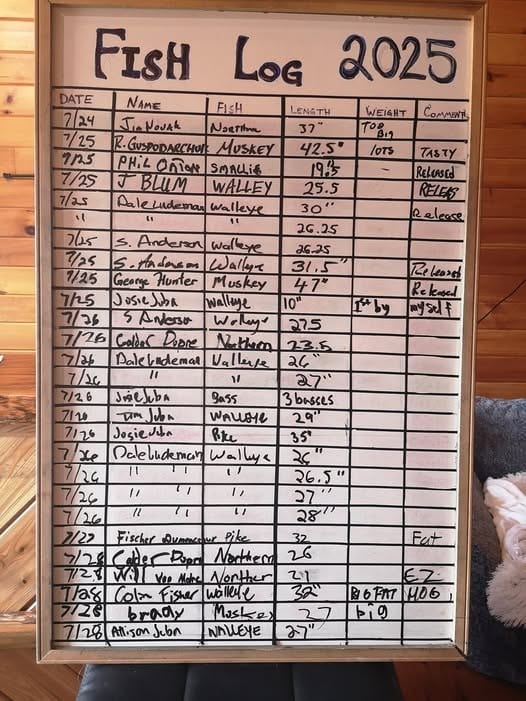 FISH LOG 2025
DATE NAME FISH LENGTH WEIGHT COMMENT
7/24 Jim Novak Northern 37" TOO BIG
7/25 R. GUSPODARCHUK MUSKEY 42.5" lOTS TASTY
7/25 PHIL SMALLIE 19.5" - RELEASED
7/25 J BLUM WALLEY 25.5
7/25 Dale Ludeman walleye 30" Release
" " " 26.25
7/25 S. Anderson walleye 26.25
7/25 S. Anderson Walleye 31.5" Released
7/25 George Hunter Muskey 47" Released
7/25 Josie Juba walleye 10" 1st by myself
7/26 S Anderson Walleye 27.5
7/26 Calder Northern 23.5
7/26 Dale Ludeman Walleye 26"
7/26 " " 27"
7/26 Josie Juba Bass 3 basses
7/26 Tim Juba WALLEYE 29"
7/26 Josie Juba Pike 35"
7/26 Dale Ludeman Walleye 26"
7/26 " " " 26.5"
7/26 " " " 27"
7/26 " " " 28"
7/27 Fischer Pike 32 Fat
7/28 Calder Northern 26
7/28 Will Norther 21 EZ
7/28 Colin Fisher walleye 32" BIG FAT HOG
7/28 brady Muskey 27 big
7/28 Allison Juba WALLEYE 27"